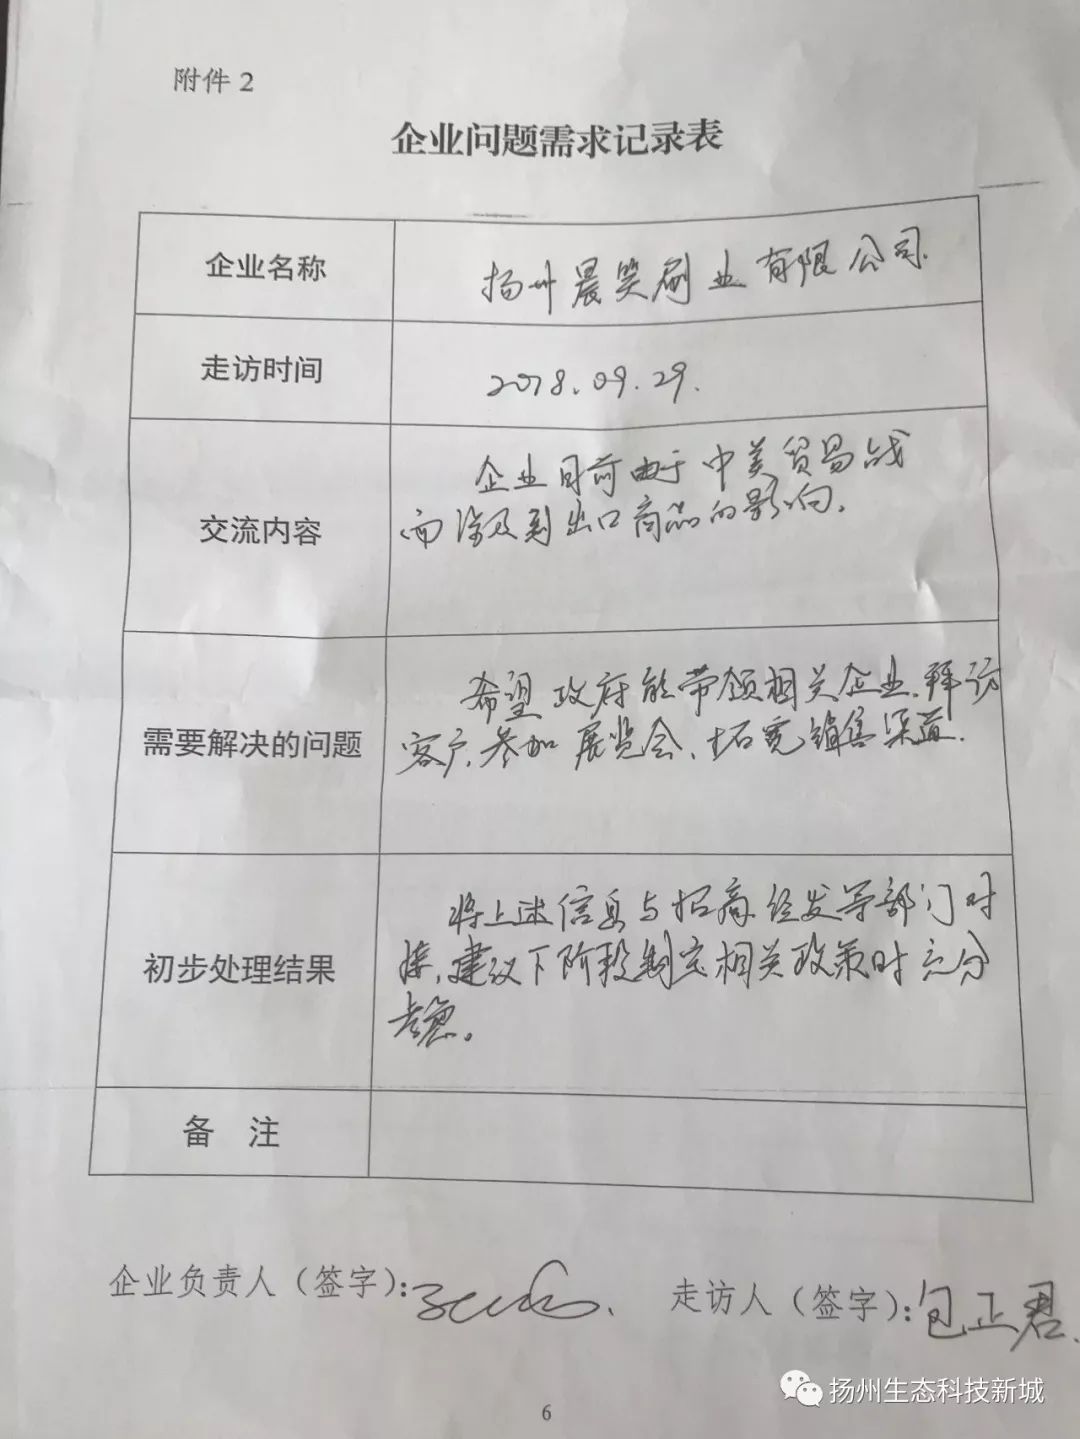 附件 2
企业问题需求记录表
企业名称
扬州晨笑刷业有限公司.
走访时间
2018.09.29.
交流内容
企业目前由于中美贸易战
而涉及到出口商品的影响.
需要解决的问题
希望政府能带领相关企业、拜访
客户、参加展览会、拓宽销售渠道.
初步处理结果
将上述信息与招商经发等部门对
接,建议下阶段制定相关政策时充分
考虑。
备 注
企业负责人(签字):
走访人(签字):包正君.
扬州生态科技新城
6